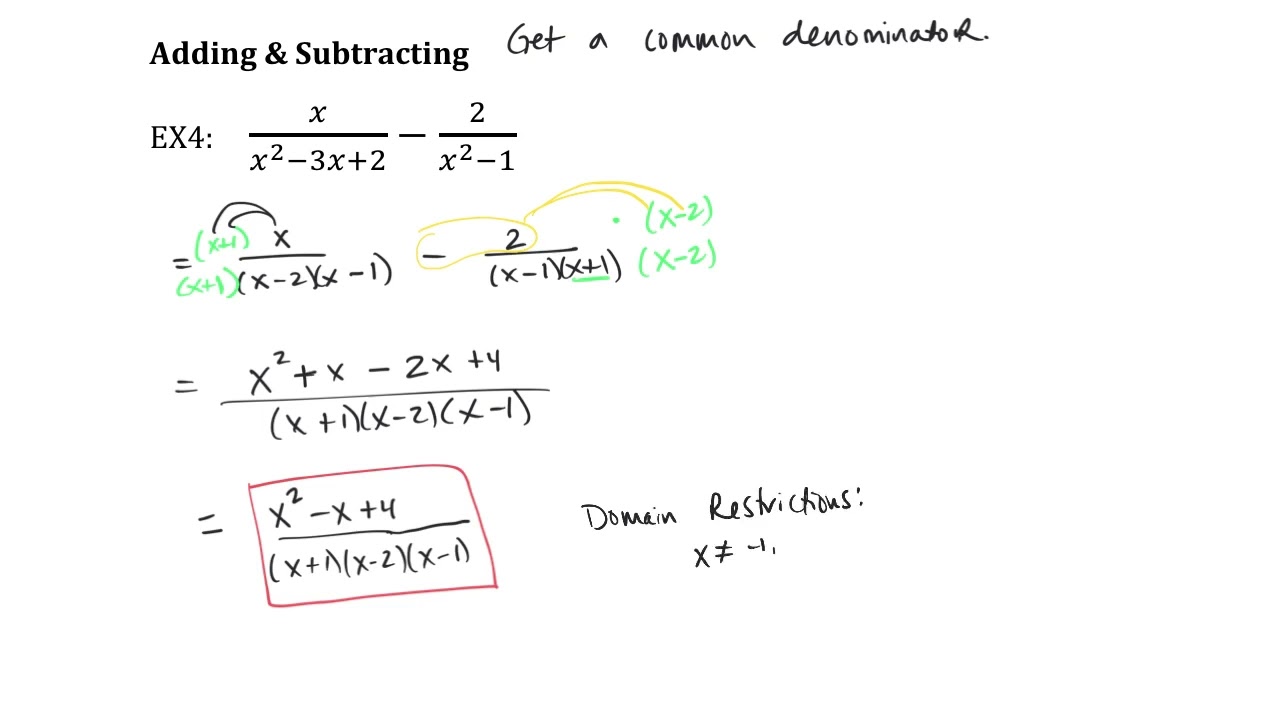 Adding & Subtracting Get a common denominator.
EX4: x/(x²−3x+2) − 2/(x²−1)
= (x+1) x / (x+1)(x-2)(x-1) − 2 · (x-2) / (x-1)(x+1) (x-2)
= x² + x - 2x + 4 / (x+1)(x-2)(x-1)
= x² - x + 4 / (x+1)(x-2)(x-1)
Domain Restrictions:
x ≠ -1,